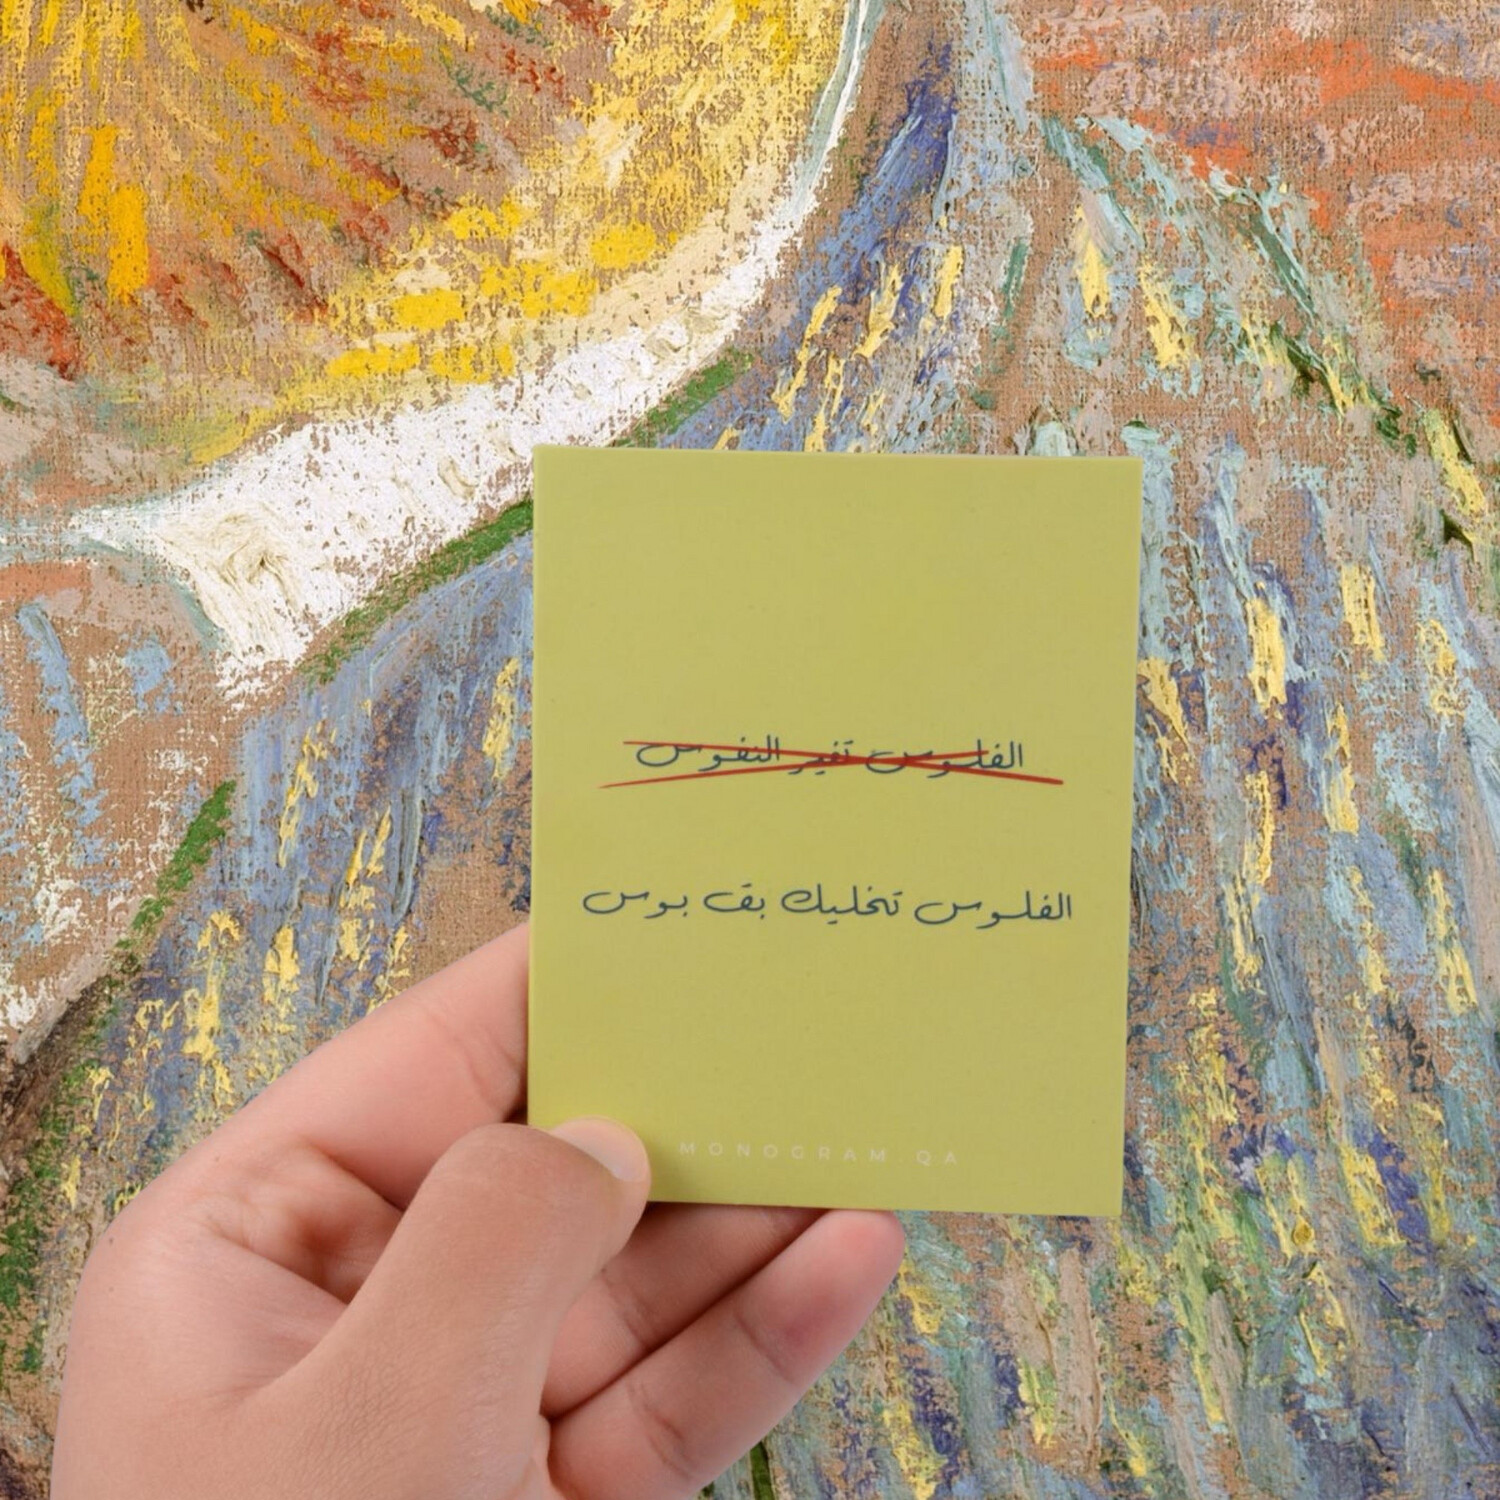 الفلوس تغير النفوس
الفلوس تخليك بق بوس
MONOGRAM.QA